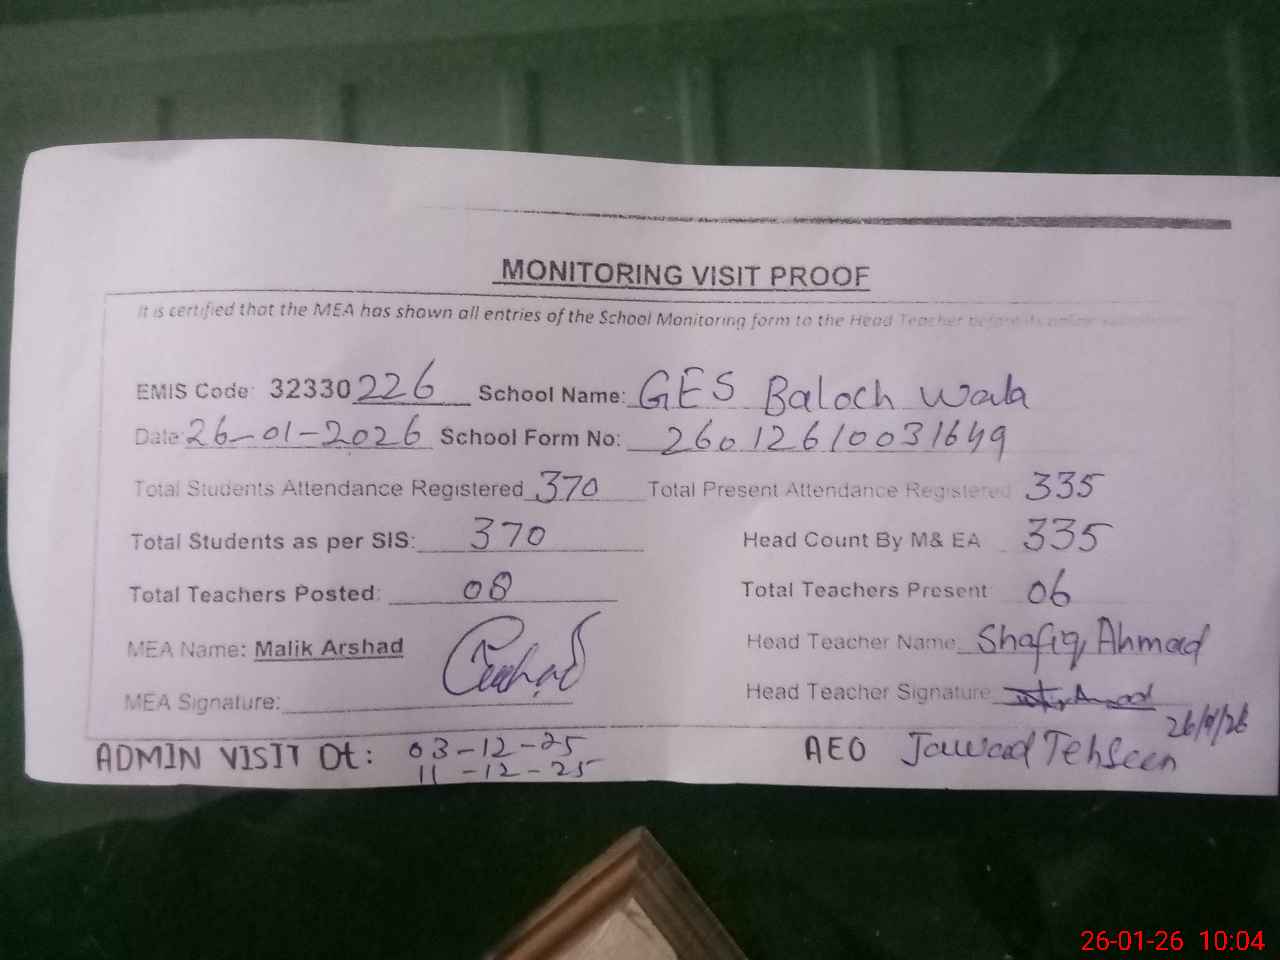 MONITORING VISIT PROOF
It is certified that the MEA has shown all entries of the School Monitoring form to the Head Teacher before its online
EMIS Code: 32330226 School Name: GES Baloch Wala
Date: 26-01-2026 School Form No: 26012610031649
Total Students Attendance Registered 370 Total Present Attendance Registered 335
Total Students as per SIS: 370 Head Count By M& EA 335
Total Teachers Posted: 08 Total Teachers Present 06
MEA Name: Malik Arshad Head Teacher Name Shafiq Ahmad
MEA Signature: Head Teacher Signature
26/1/26
ADMIN VISIT Dt: 03-12-25 AEO Jawad Tehseen
11-12-25
26-01-26 10:04